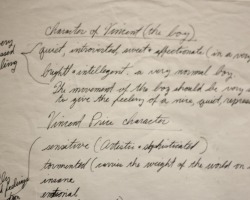 Character of Vincent (the boy)
very
quiet, introverted, sweet + affectionate (in a very
bright + intellegent, a very normal boy
The movement of the boy should be very
to give the feeling of a nice, quiet, repress
Vincent Price character
sensative (Artistic + sophisticated)
tormented (carries the weight of the world on
insane